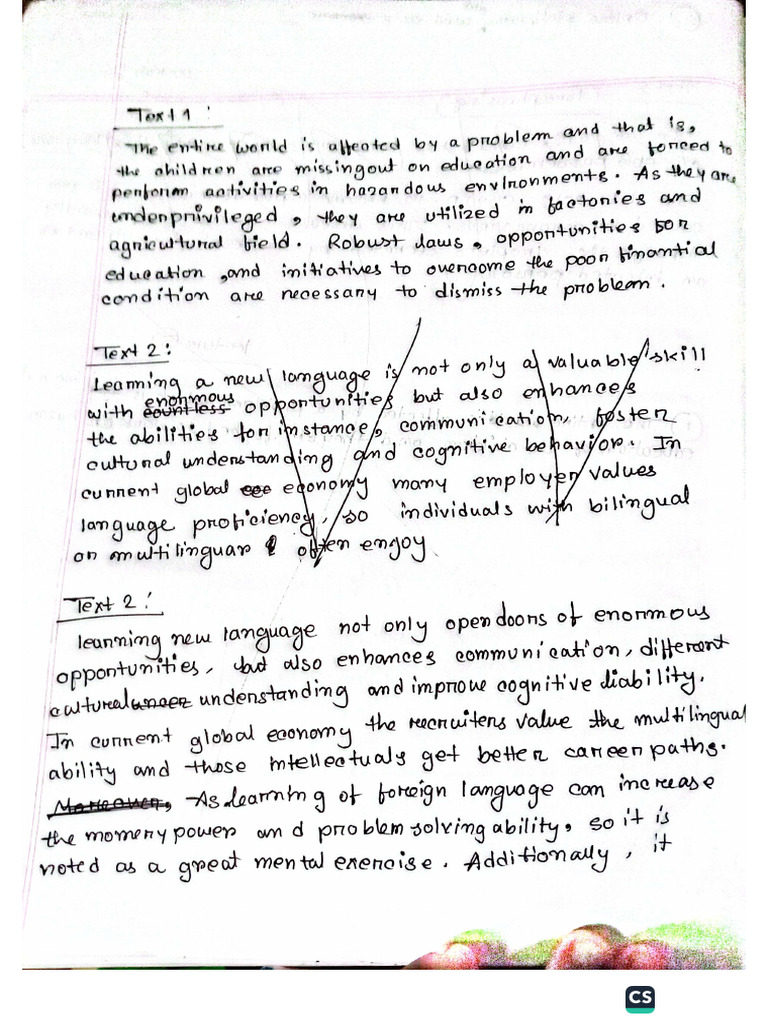 Text 1 :
The entire world is affected by a problem and that is,
the children are missing out on education and are forced to
perform activities in hazandous environments. As they are
underprivileged, they are utilized in factories and
agricultural field. Robust laws, opportunities for
education, and initiatives to overcome the poor finantial
condition are necessary to dismiss the problem.
Text 2 :
Learning a new language is not only a valuable skill
enormous
with countless opportunities but also enhances
the abilities for instance, communication, foster
cultural understanding and cognitive behavior. In
current global eco economy many employer values
language proficiency, so individuals with bilingual
or multilinguar often engoy
Text 2 :
learning new language not only open doors of enormous
opportunities, but also enhances communication, different
cultural understanding and improve cognitive diability.
In current global economy the recruiters value the multilingual
ability and those intellectuals get better career paths.
Moreover, As learning of foreign language can increase
the momery power and problem solving ability, so it is
noted as a great mental exercise. Additionally, it
CS